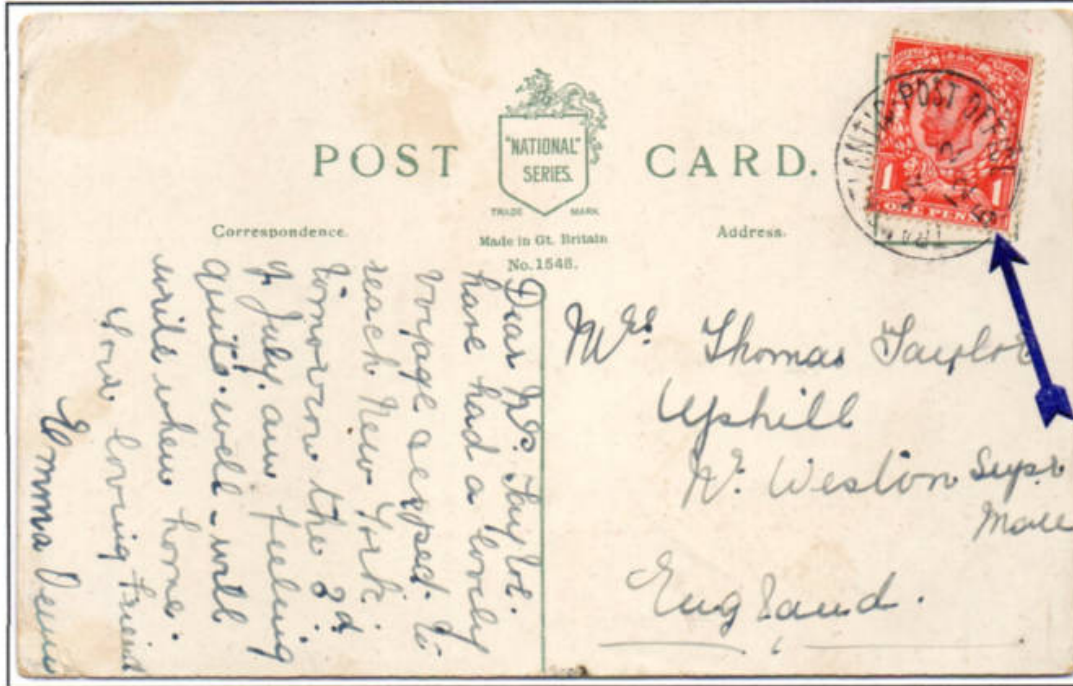 POST CARD.
"NATIONAL"
SERIES.
TRADE MARK
Made in Gt. Britain
No. 1548.
Correspondence.
Address.
TRANSATLANTIC POST OFFICE
1 1
ONE PENNY
Dear Mrs. Taylor.
have had a lovely
voyage & expect to
reach New York
tomorrow the 3d
of July, am feeling
quite well - will
write when home.
Your loving friend
Emma
Mrs. Thomas Taylor
Uphill
Nr. Weston Supr
Mare
England.